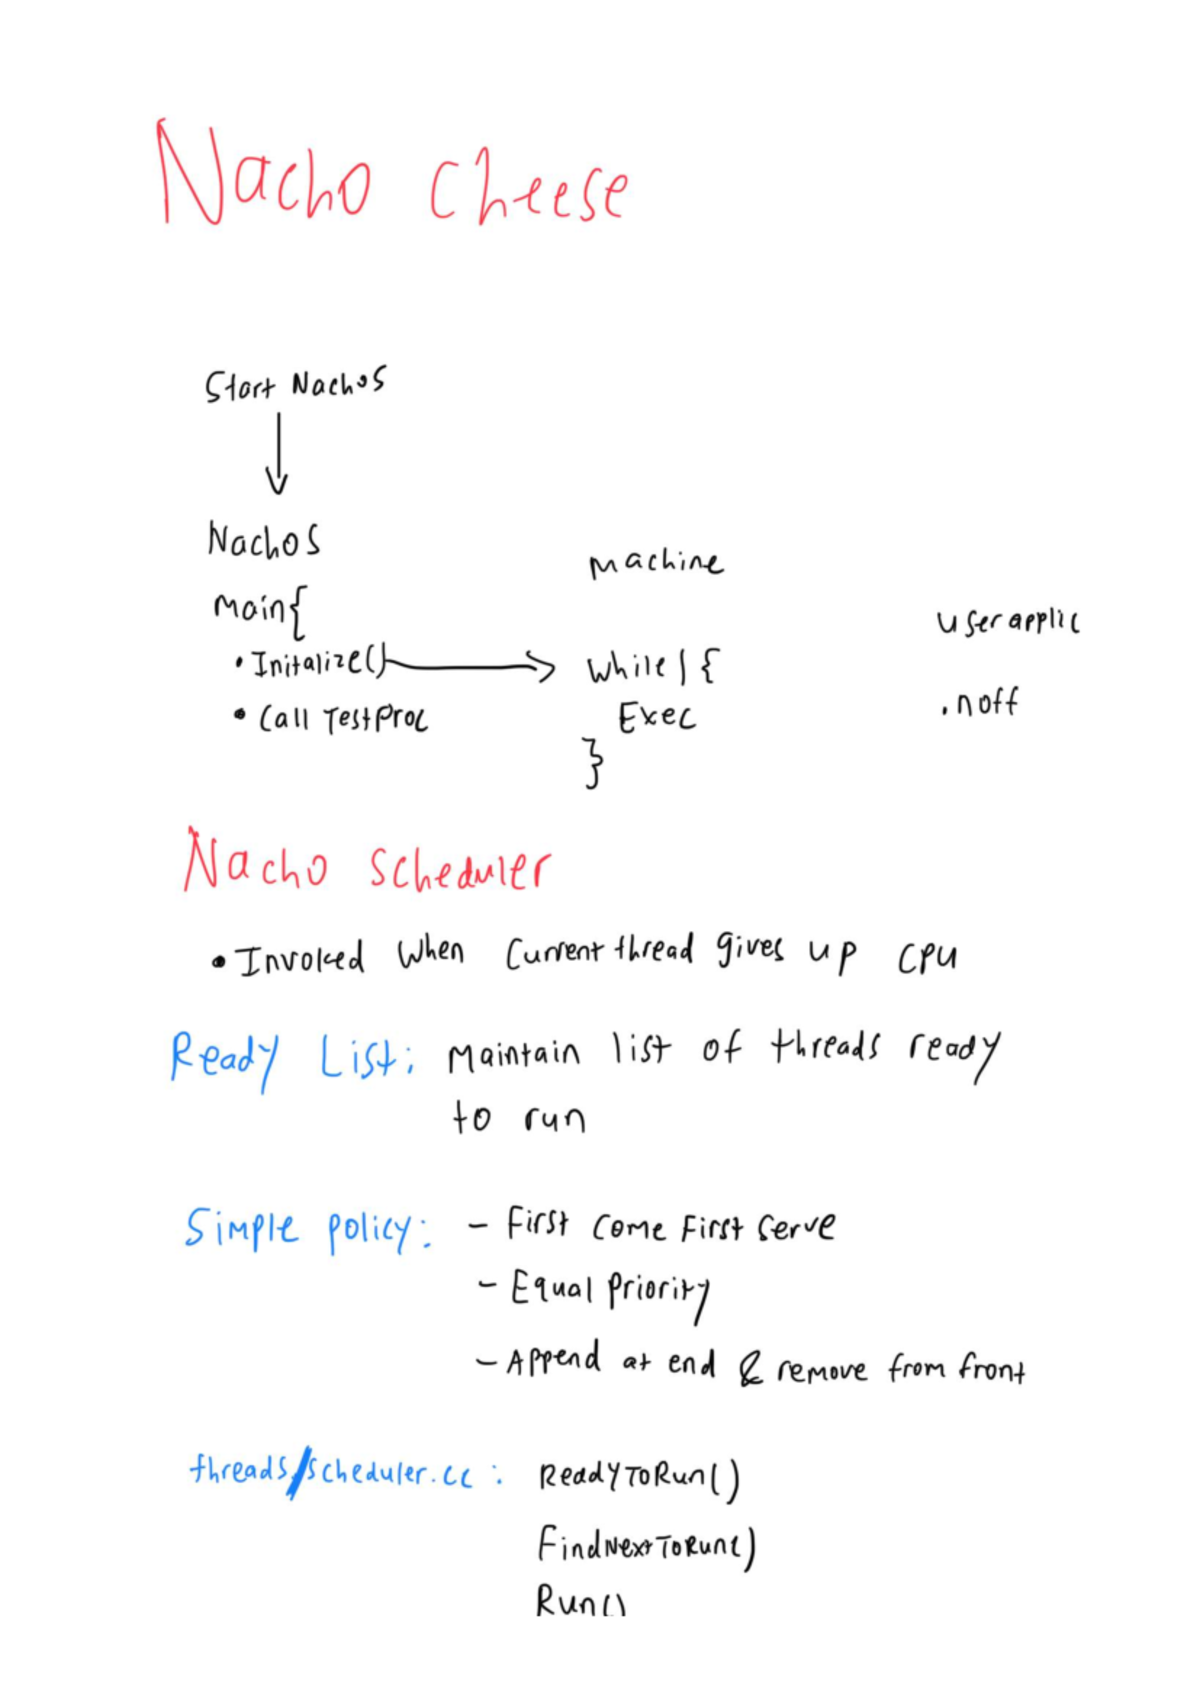 Nacho Cheese
Start Nachos
Nachos
machine
main{
user applic
• Initalize()
while 1 {
• Call TestProc
Exec
.noff
}
Nacho scheduler
• Invoked when current thread gives up CPU
Ready List: Maintain list of threads ready
to run
Simple policy: - First Come First Serve
- Equal Priority
- Append at end & remove from front
threads/scheduler.cc : ReadyToRun()
FindNextToRun()
Run()